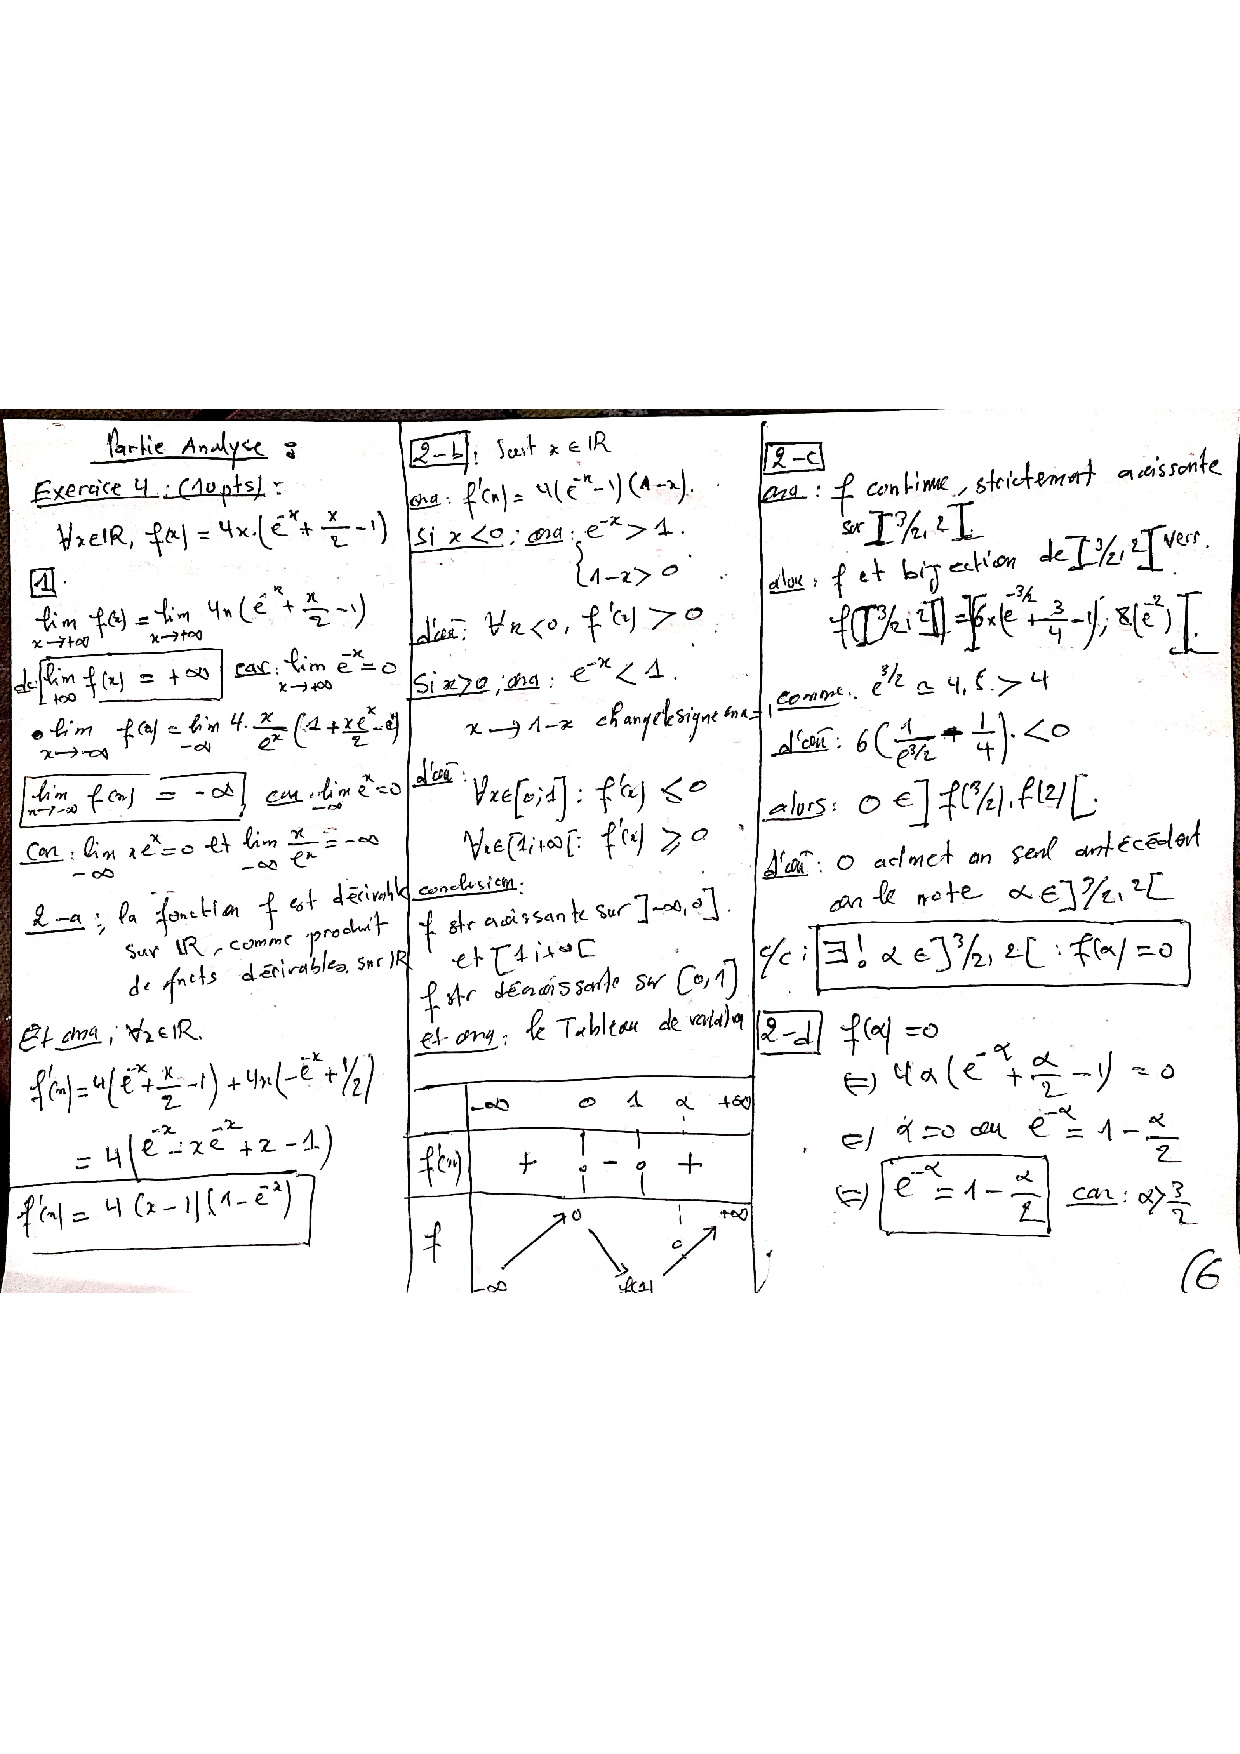 Partie Analyse :
Exercice 4 : (10pts) :
∀x∈IR, f(x) = 4x.(e^-x + x/2 - 1)
1.
lim x→+∞ f(x) = lim x→+∞ 4x(e^-x + x/2 - 1)
dc: lim +∞ f(x) = +∞ car: lim x→+∞ e^-x = 0
• lim x→-∞ f(x) = lim -∞ 4. x/e^x (1 + xe^x/2 - e^x)
lim x→-∞ f(x) = -∞ car lim -∞ e^x = 0
car: lim -∞ xe^x = 0 et lim -∞ x/e^x = -∞
2-a: la fonction f est dérivable
sur IR, comme produit
de fncts dérivables sur IR
Et ona: ∀x∈IR.
f'(x) = 4(e^-x + x/2 - 1) + 4x(-e^-x + 1/2)
= 4(e^-x - xe^-x + x - 1)
f'(x) = 4(x-1)(1-e^-x)
2-b: Soit x∈IR
ona: f'(x) = 4(e^-x - 1)(1-x).
Si x<0; ona: e^-x > 1.
{1-x>0
d'où: ∀x<0, f'(x) > 0
Si x>0; ona: e^-x < 1.
x → 1-x change le signe en 1
d'où:
∀x∈[0;1]: f'(x) ≤ 0
∀x∈[1;+∞[: f'(x) ≥ 0
conclusion:
f str croissante sur ]-∞,0].
et [1;+∞[
f str décroissante sur [0,1]
et ona: le Tableau de variation
-∞ 0 1 α +∞
f'(x) + 0 - 0 +
0 +∞
f 0
-∞ f(1)
2-c
ona: f continue, strictement croissante
sur ]3/2, 2[.
alors: f et bijection de ]3/2, 2[ vers.
f(]3/2; 2[) = ]6×(e^-3/2 + 3/4 - 1); 8(e^-2)[.
comme: e^3/2 ≃ 4,5. > 4
d'où: 6(1/e^3/2 - 1/4). < 0
alors: 0 ∈ ]f(3/2), f(2)[.
d'où: 0 admet un seul antécédent
on le note α∈]3/2, 2[
c/c: ∃! α∈]3/2, 2[ : f(α) = 0
2-d f(α) = 0
⇔ 4α(e^-α + α/2 - 1) = 0
⇔ α=0 ou e^-α = 1 - α/2
⇔ e^-α = 1 - α/2 car: α>3/2
(6